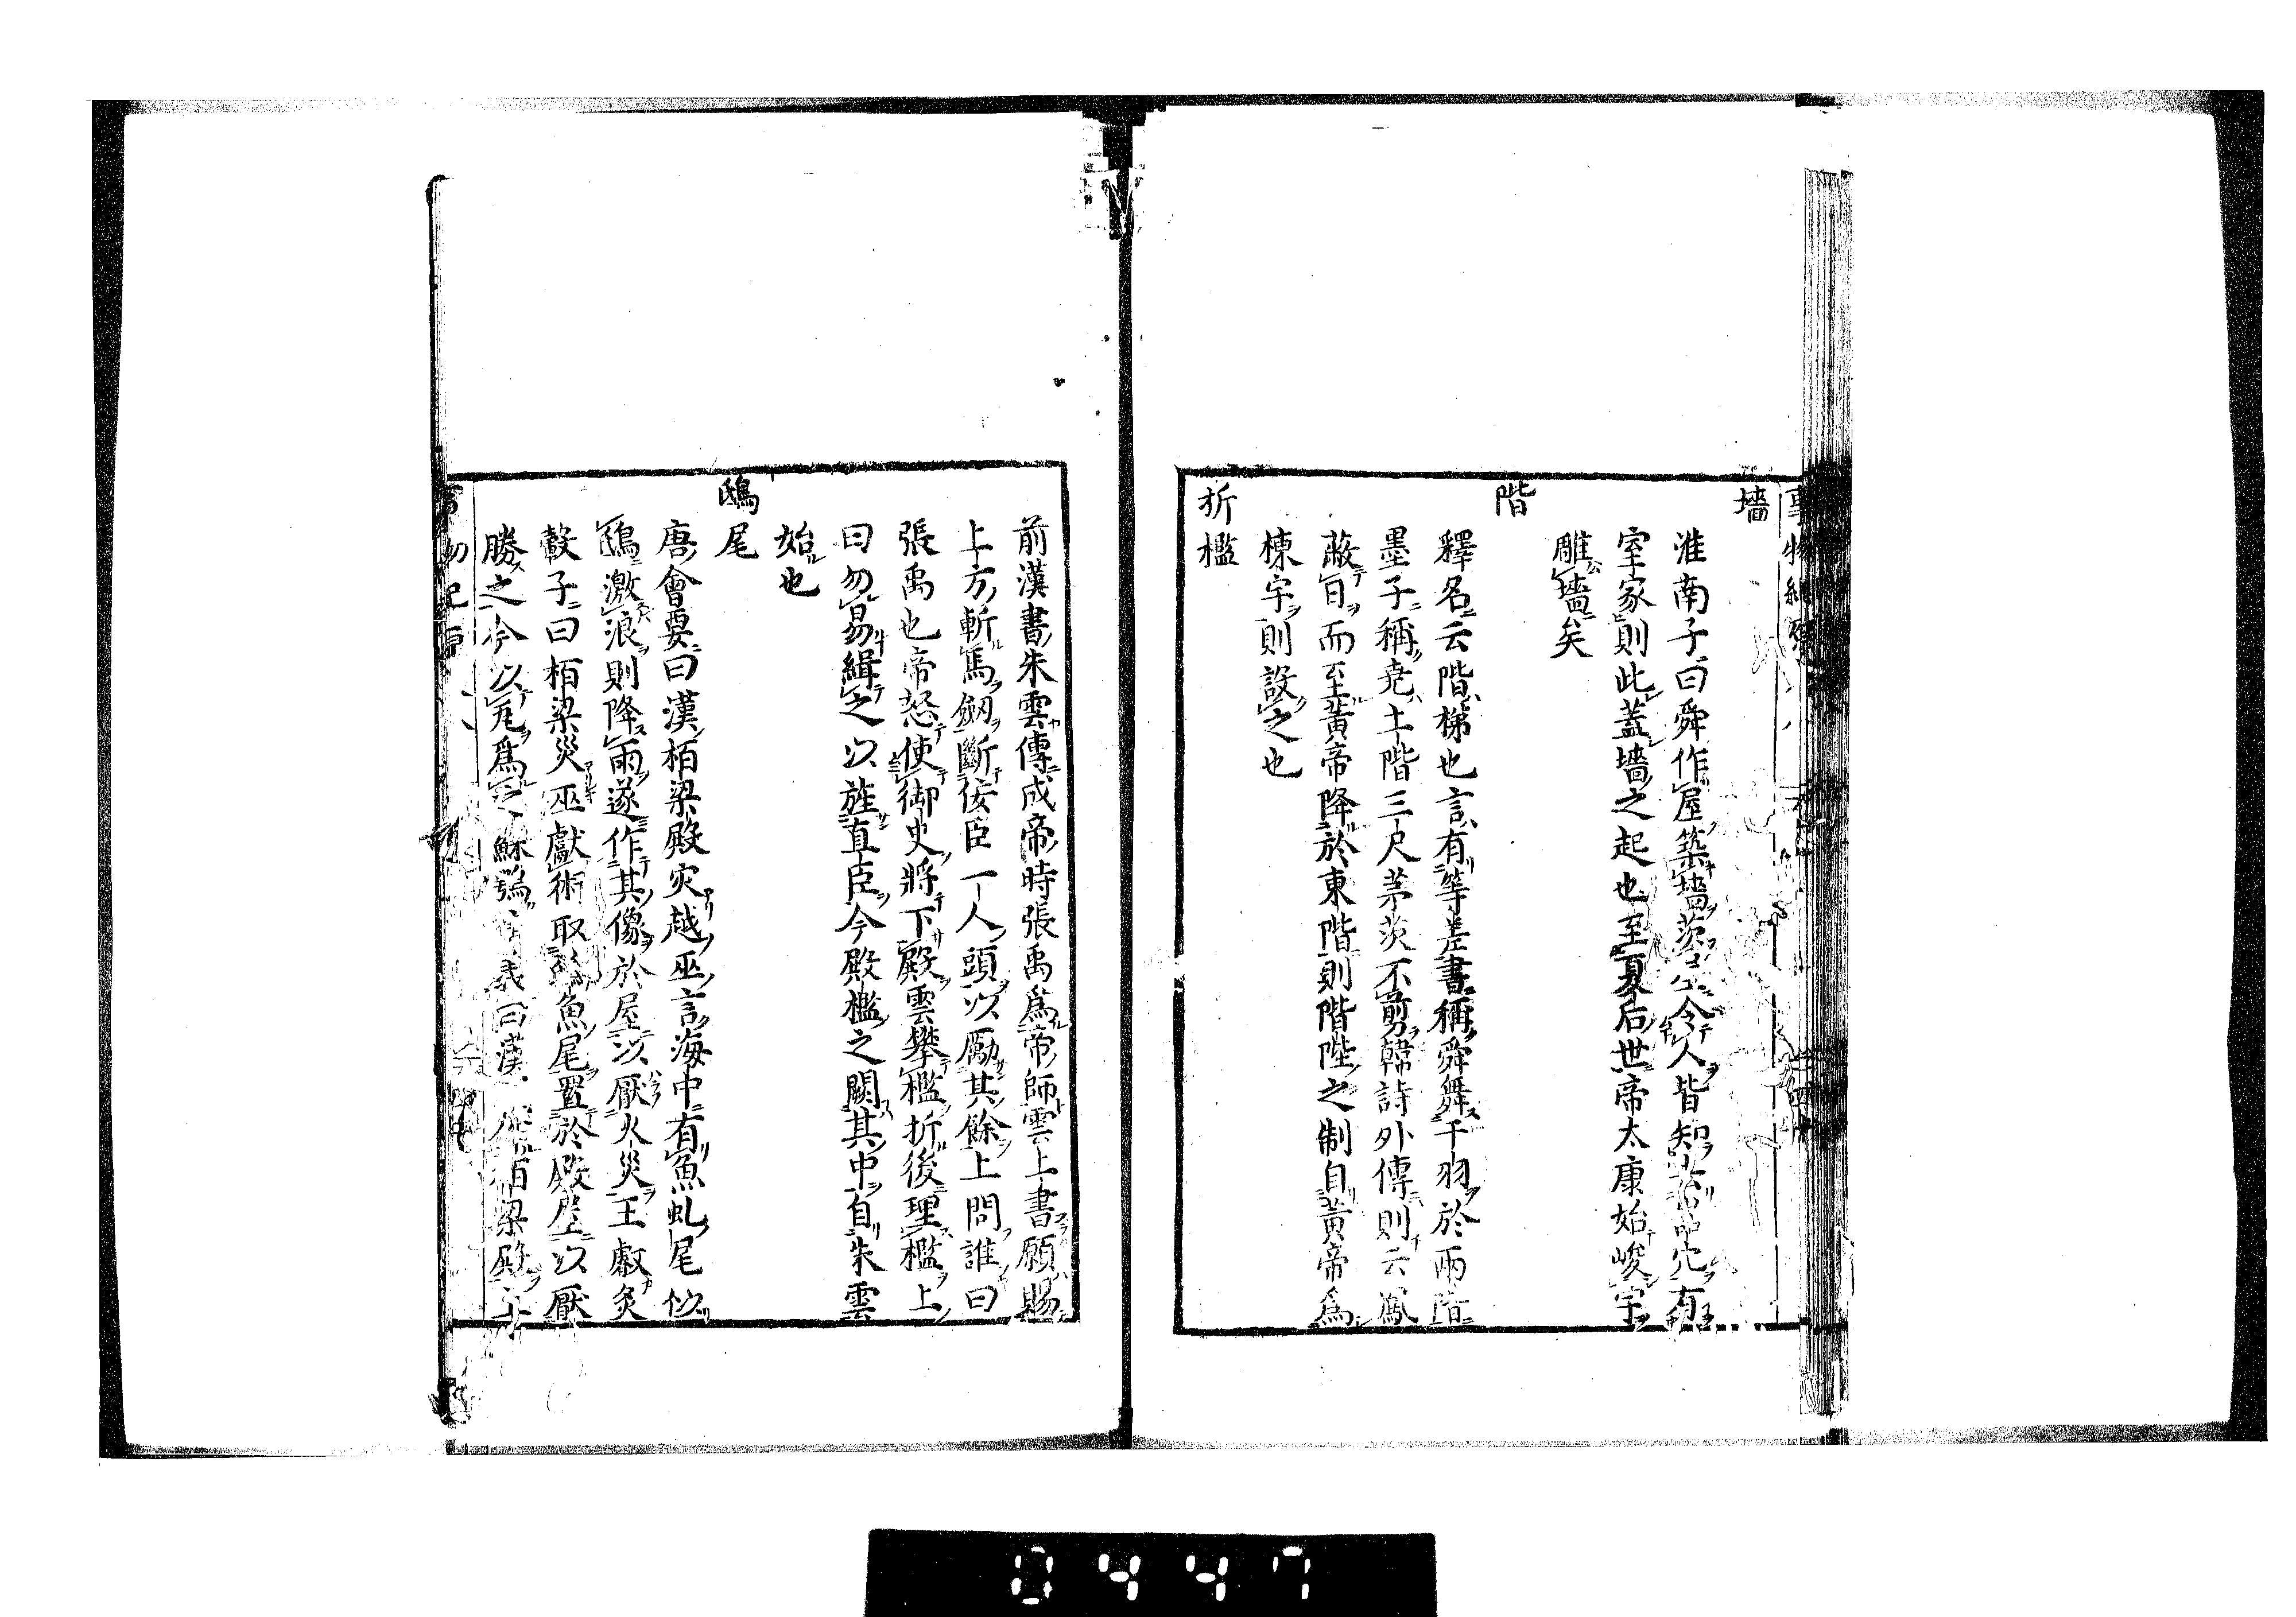 墻
淮南子曰舜作屋築墻茨屋令人皆知去岩穴有
室家則此蓋墻之起也至夏后世帝太康始峻宇
雕墻矣
階
釋名云階梯也言有等差書稱舜舞干羽於兩階
墨子稱堯土階三尺茅茨不剪韓詩外傳則云鳳
蔽日而至黃帝降於東階則階陛之制自黃帝爲
棟宇則設之也
折檻
前漢書朱雲傳成帝時張禹爲帝師雲上書願賜
上方斬馬劒斷佞臣一人頭以厲其餘上問誰曰
張禹也帝怒使御史將下殿雲攀檻折後理檻上
曰勿易緝之以旌直臣今殿檻之闕其中自朱雲
始也
鴟尾
唐會要曰漢栢梁殿灾越巫言海中有魚虬尾似
鴟激浪則降雨遂作其像於屋以厭火災王叡炙
轂子曰栢梁災巫獻術取鴟魚尾置於殿屋以厭
勝之今以瓦爲之蘇鶚演義曰漢 栢梁殿上
事物紀原
0447